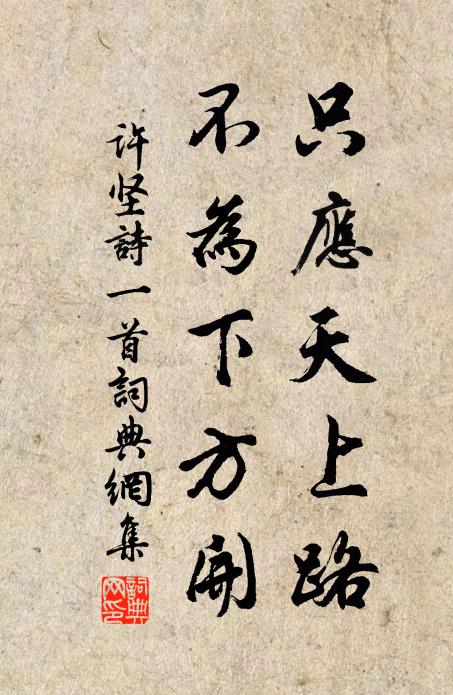 只應天上路
不為下方開
许坚詩一首詞典網集
詞典